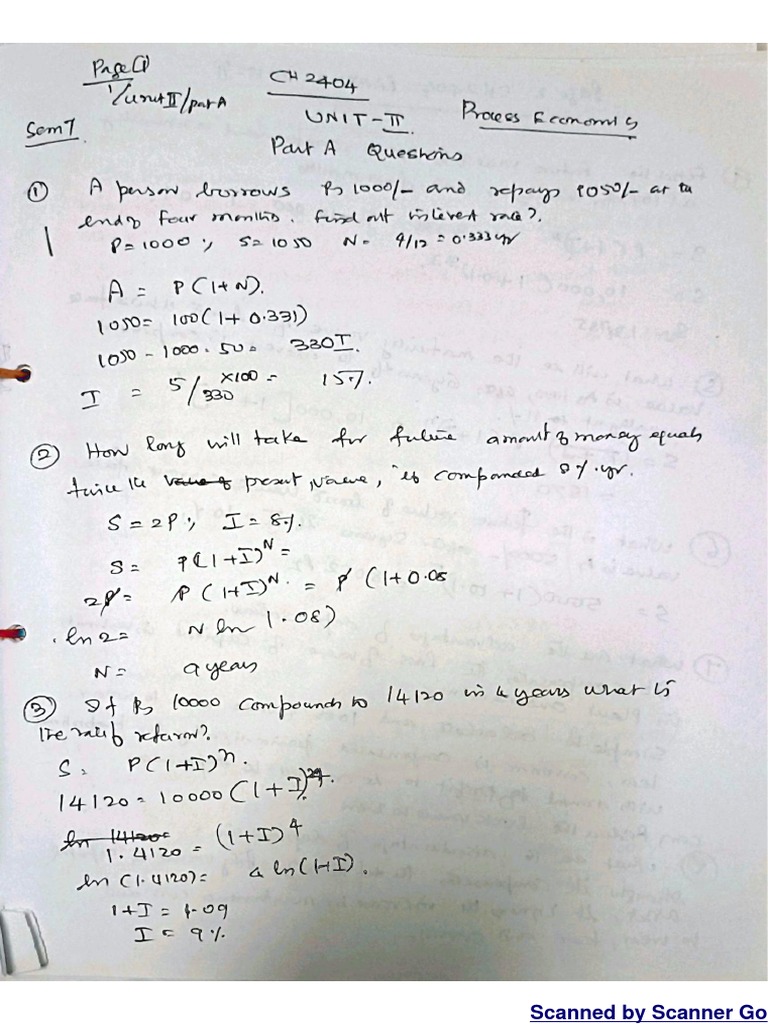 Page(1)
1/unit II/part A
CH2404
UNIT-II
Process Economics
Sem 7
Part A Questions
① A person borrows Rs 1000/- and repays 1050/- at the
end of four months. Find out interest rate?.
P=1000; S=1050 N= 4/12 = 0.333yr
A = P(1+N).
1050= 100(1+0.331)
1050-1000.50= 330I.
I = 5/330 ×100 = 15%.
② How long will take for future amount of money equals
twice the value of present value, if compounded 8%.yr.
S=2P; I=8%.
S= P(1+I)^N =
2P= P(1+I)^N. = P(1+0.08
ln2= N ln(1.08)
N= 9 years
③ If Rs 10000 compounds to 14120 in 4 years what is
the rate of return?.
S= P(1+I)^n.
14120=10000(1+I)^4.
ln 14120=
1.4120= (1+I)^4
ln(1.4120)= 4 ln(1+I).
1+I = 1.09
I = 9%
Scanned by Scanner Go